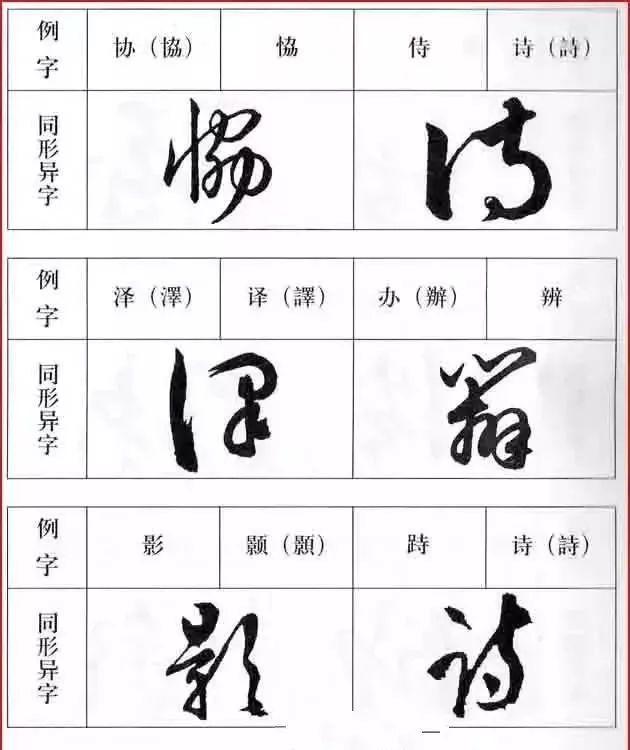 例字 协（協） 恊 侍 诗（詩）
同形异字
例字 泽（澤） 译（譯） 办（辦） 辨
同形异字
例字 影 颢（顥） 跱 诗（詩）
同形异字